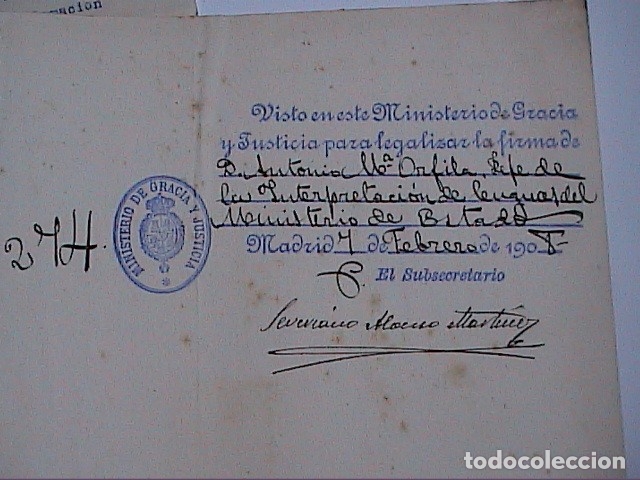 macion
Visto en este Ministerio de Gracia
y Justicia para legalizar la firma de
D. Antonio Mª Orfila, Jefe de
la Interpretación de lenguas del
Ministerio de Estado
Madrid 7 de Febrero de 1908
P. El Subsecretario
Severiano Alonso Martínez
274.
MINISTERIO DE GRACIA Y JUSTICIA
todocoleccion